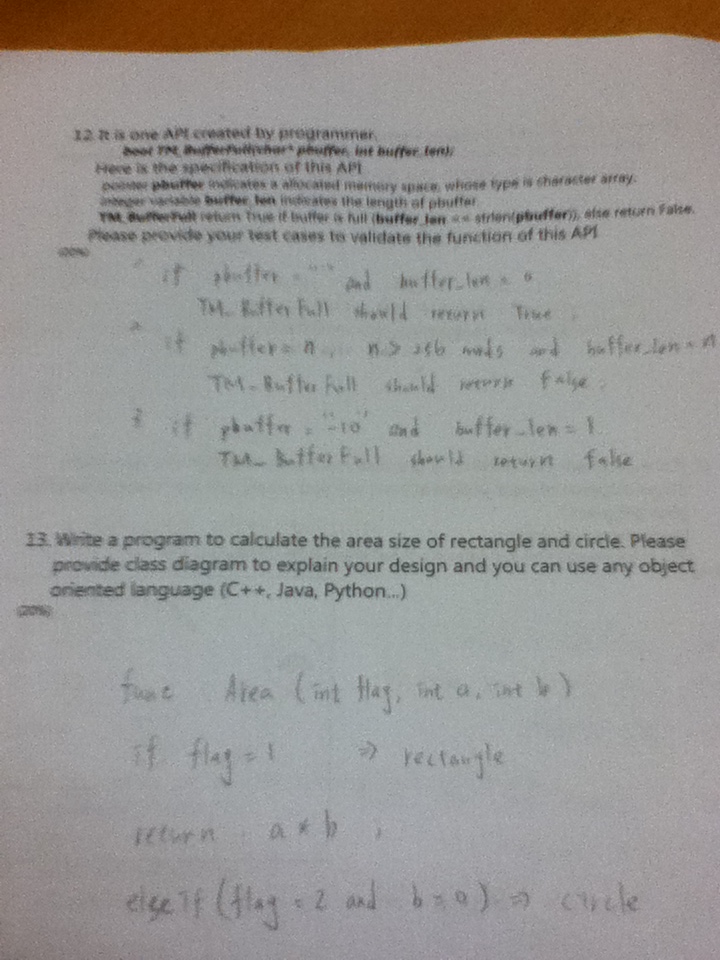 12. It is one API created by programmer.
bool TM_BufferFull(char* pbuffer, int buffer_len);
Here is the specification of this API
pointer pbuffer indicates a allocated memory space, whose type is character array.
integer variable buffer_len indicates the length of pbuffer
TM_BufferFull return True if buffer is full (buffer_len == strlen(pbuffer)), else return False.
Please provide your test cases to validate the function of this API
(20%)
if pbuffer = "" and buffer_len = 0
TM_BufferFull should return True.
2. if pbuffer = n, n > 256 and buffer_len = n
TM_BufferFull should return false.
3. if pbuffer = "-10" and buffer_len = 1
TM_BufferFull should return false
13. Write a program to calculate the area size of rectangle and circle. Please
provide class diagram to explain your design and you can use any object
oriented language (C++, Java, Python...)
(20%)
func Area (int flag, int a, int b)
if flag = 1 => rectangle
return a * b ;
else if (flag = 2 and b = 0) => circle